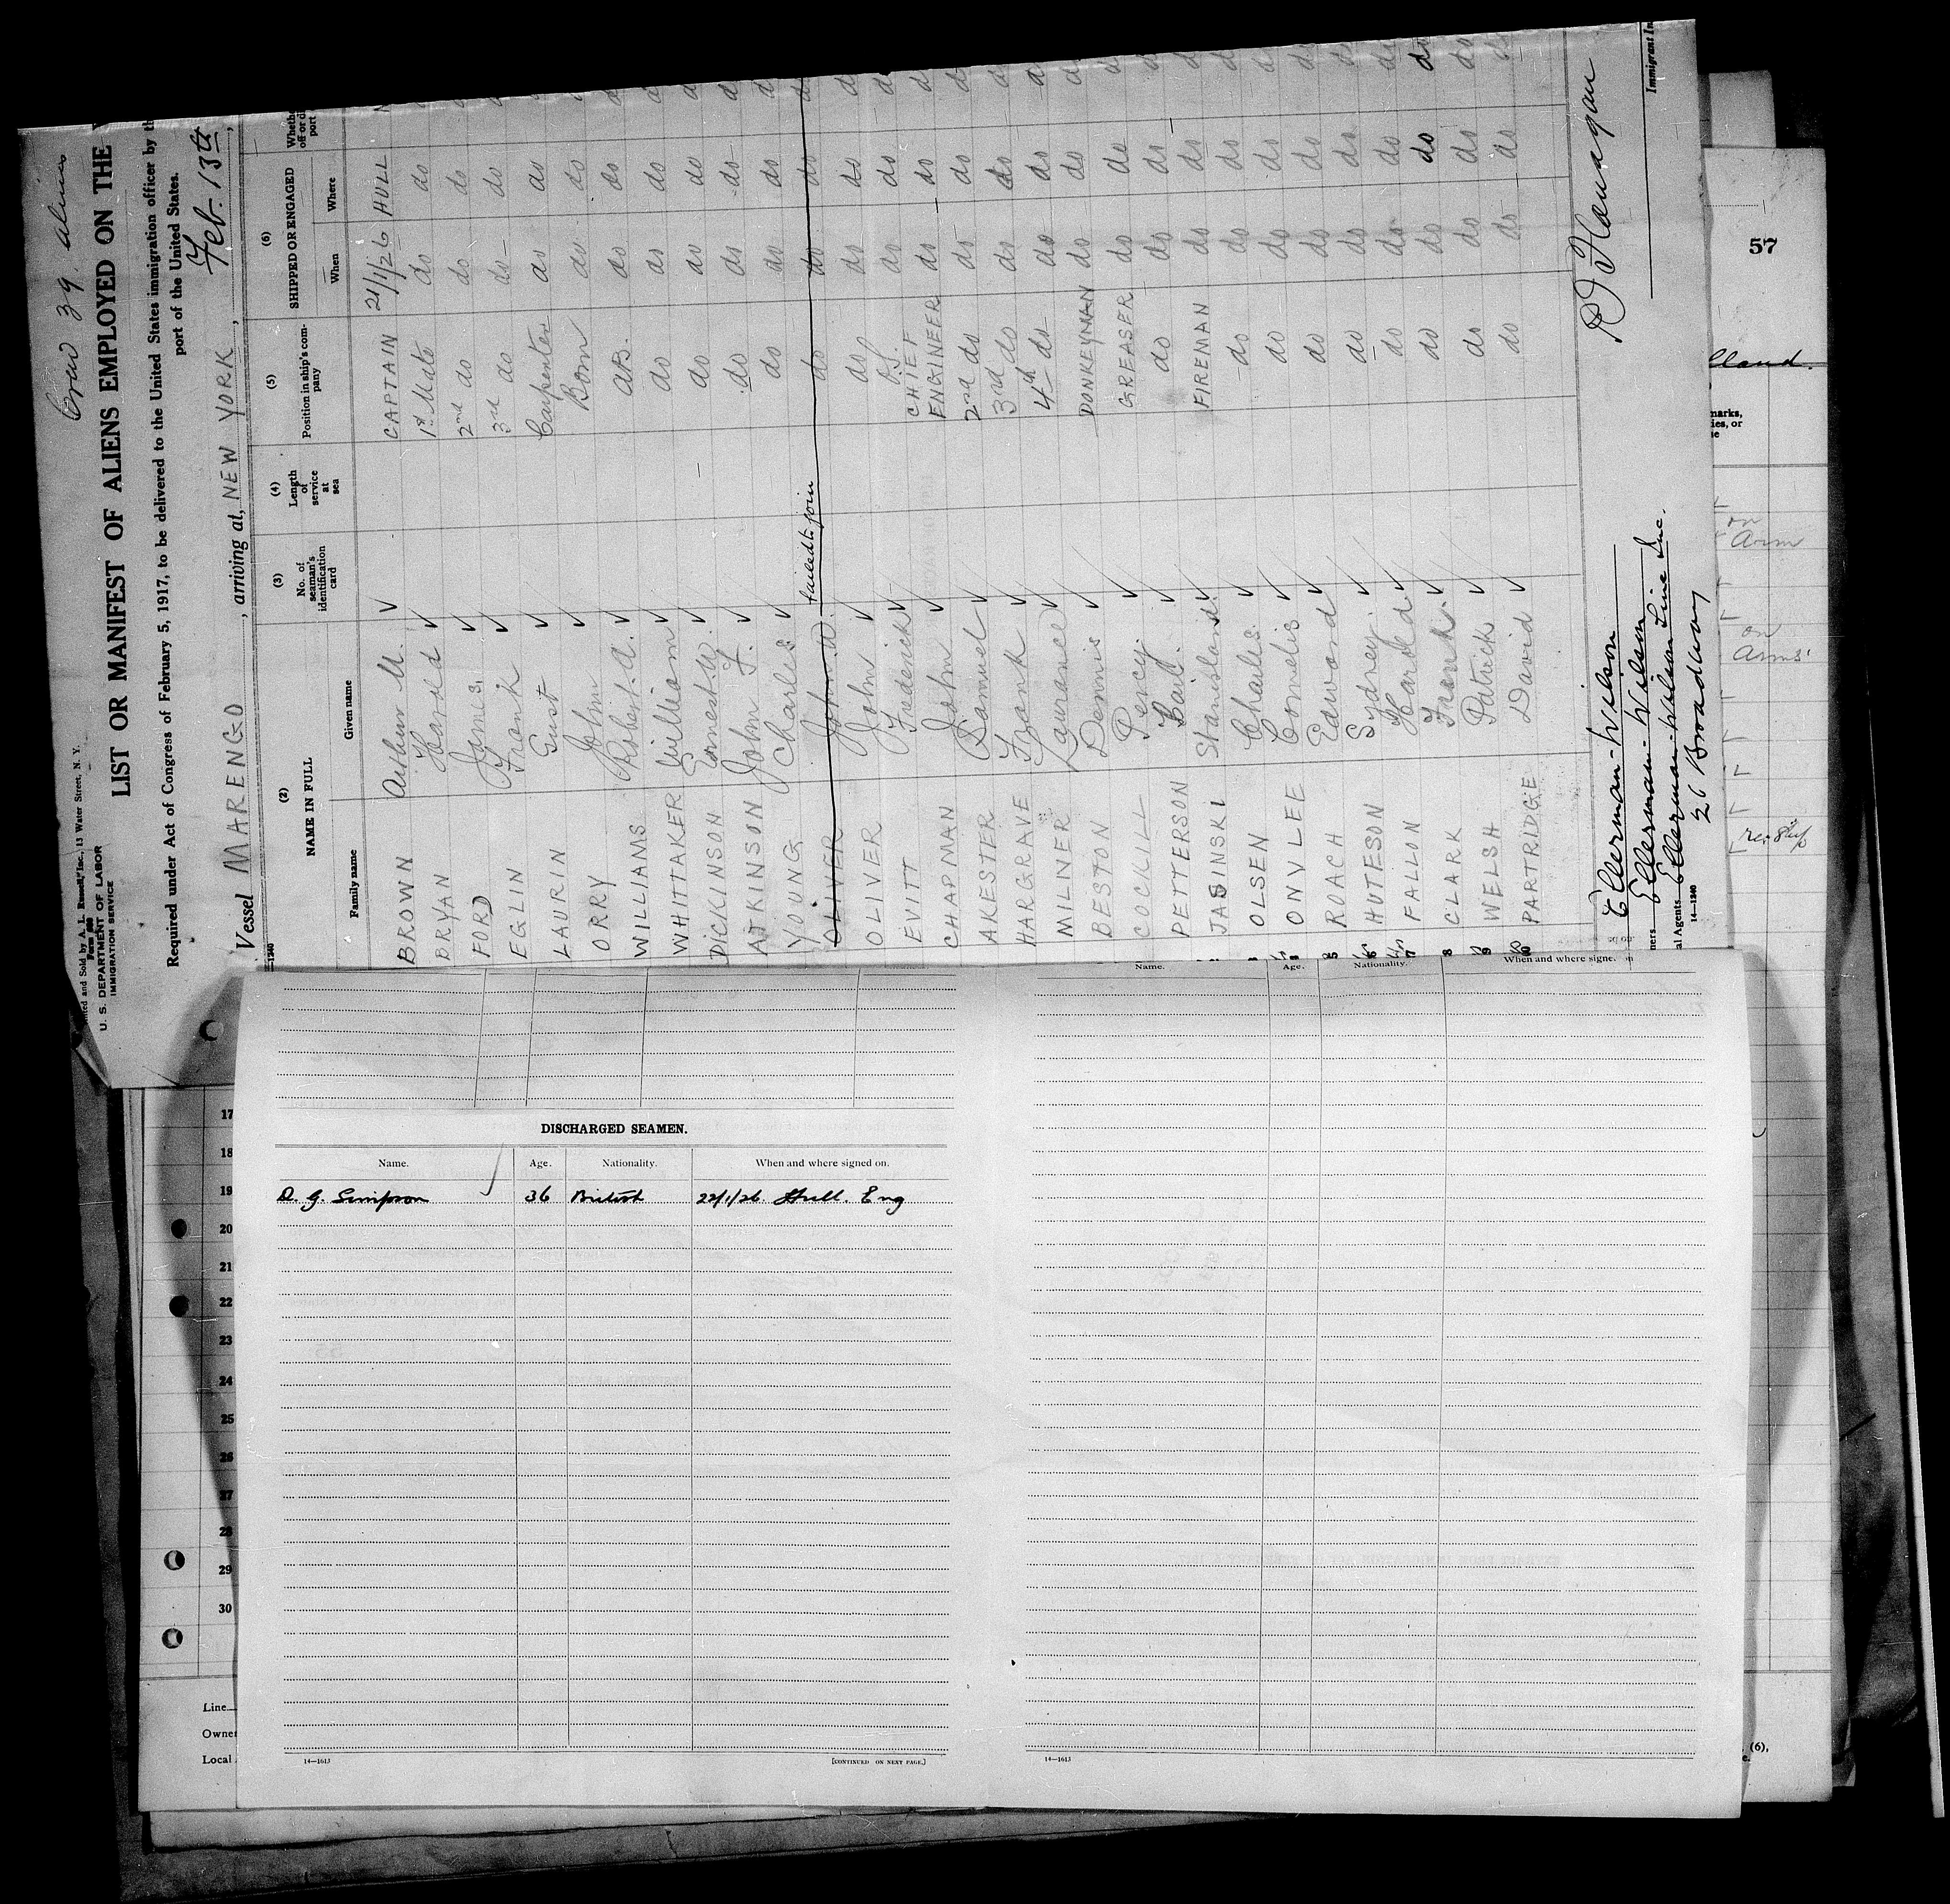 Crew 39. aliens
Form 680
U. S. DEPARTMENT OF LABOR
IMMIGRATION SERVICE
LIST OR MANIFEST OF ALIENS EMPLOYED ON THE
Required under Act of Congress of February 5, 1917, to be delivered to the United States immigration officer by th
port of the United States.
Vessel MARENGO, arriving at, NEW YORK, Feb. 13th,
(2) NAME IN FULL (3) No. of seaman's identification card (4) Length of service at sea (5) Position in ship's company (6) SHIPPED OR ENGAGED
Family name Given name When Where
BROWN Arthur M. CAPTAIN 21/1/26 HULL
BRYAN Harold 1st Mate do do
FORD James. 2nd do do do
EGLIN Frank 3rd do do do
LAURIN Gust Carpenter do do
ORRY John Bosn do do
WILLIAMS Robert. A. AB. do do
WHITTAKER William do do do
DICKINSON Ernest. W. do do do
ATKINSON John F. do do do
YOUNG Charles do do do
OLIVER John W. failed to join do do do
OLIVER John do do do
EVITT Frederick O.S. do do
CHAPMAN John CHIEF ENGINEER do do
AKESTER Samuel 2nd do do do
HARGRAVE Frank 3rd do do do
MILNER Laurance 4th do do do
BESTON Dennis DONKEYMAN do do
COCKILL Percy GREASER do do
PETTERSON do do do
JASINSKI Stanisland. FIREMAN do do
OLSEN Charles. do do do
ONVLEE Cornelis do do do
ROACH Edward do do do
HUTESON Sydney. do do do
FALLON Harold. do do do
CLARK Frank. do do do
WELSH Patrick do do do
PARTRIDGE David do do do
Ellerman-Wilson
ners Ellerman-Wilson
al Agents Ellerman-Wilson Line Inc.
26 Broadway
14—1240
Immigrant In
57
lland.
marks,
ies, or
se
on
Arm
on
Arms
17
18
19
20
21
22
23
24
25
26
27
28
29
30
Line
Owner
Local
DISCHARGED SEAMEN.
Name. Age. Nationality. When and where signed on.
D. G. Simpson 36 British 22/1/26. Hull. Eng
14—1613 [CONTINUED ON NEXT PAGE.]
Name. Age. Nationality. When and where signe. on
14—1613
(6),